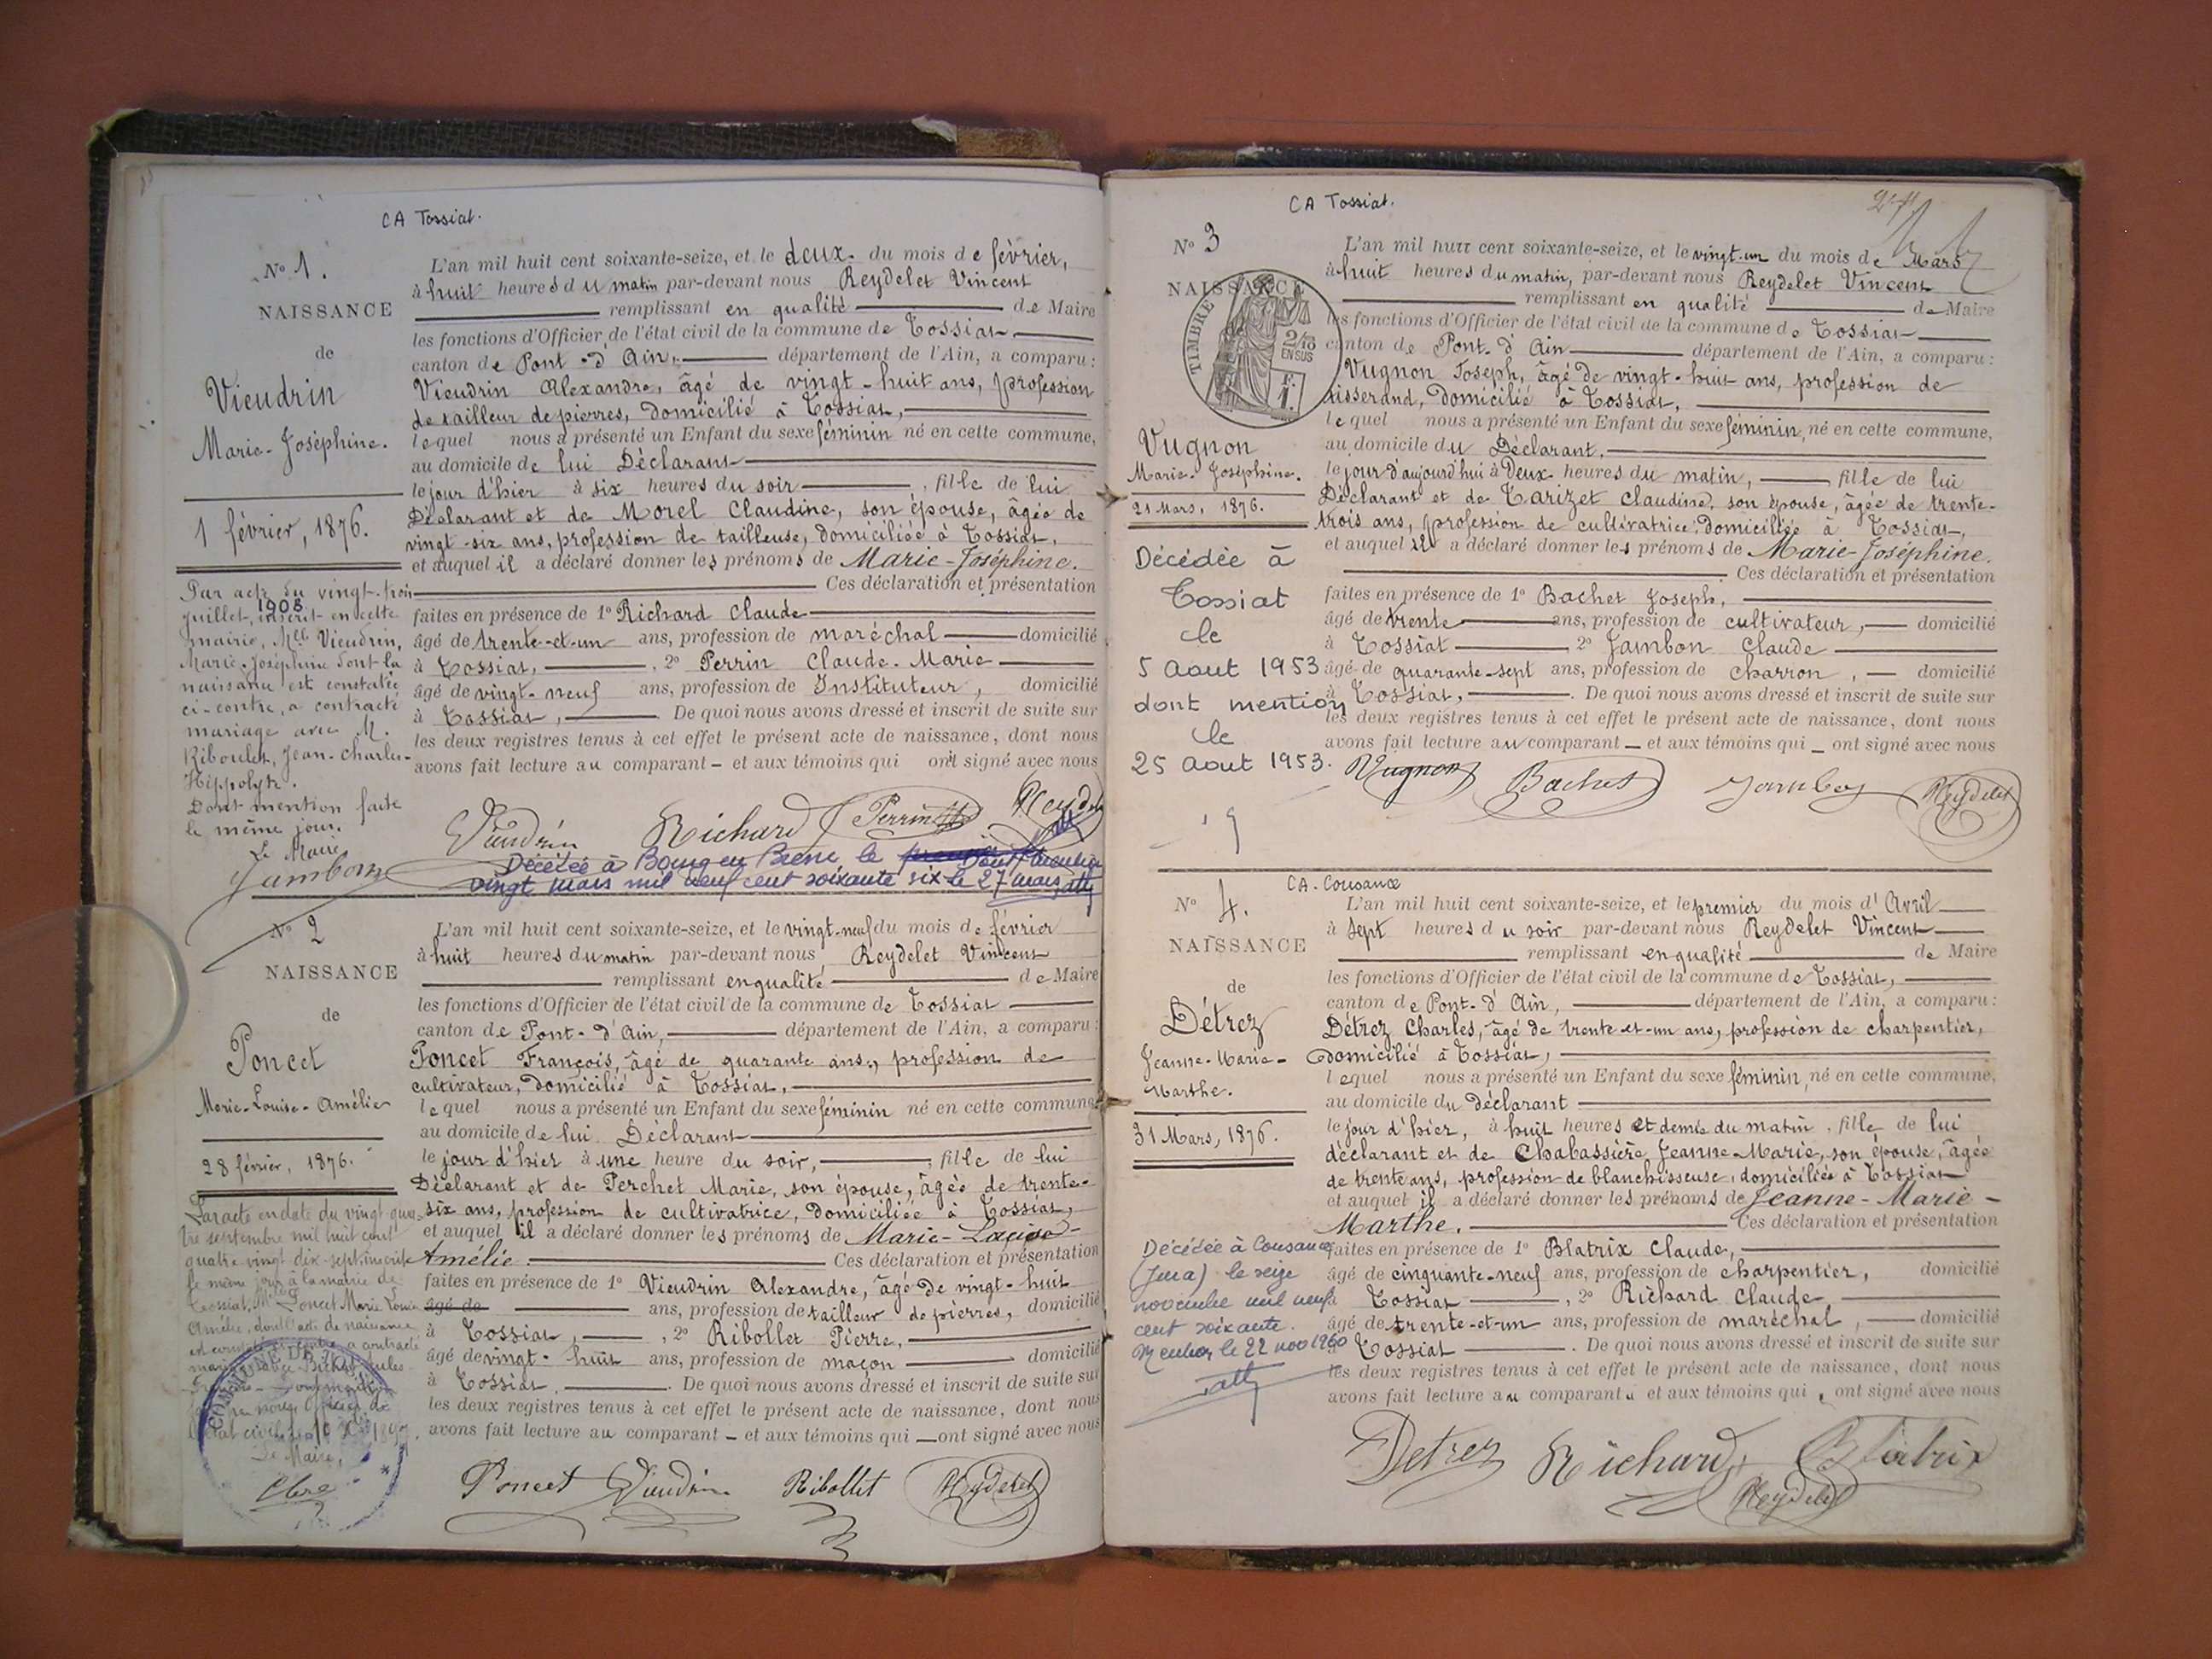 CA Tossiat.
N° 1.
NAISSANCE
de
Vieudrin
Marie-Joséphine.
1 février, 1876.
Par acte du vingt-trois
juillet, 1908 inscrit en cette
mairie, Mlle Vieudrin,
Marie-Joséphine dont la
naissance est constatée
ci-contre, a contracté
mariage avec M.
Riboulet, Jean-Charles-
Hippolyte.
Dont mention faite
le même jour.
Le Maire
Jambon
L'an mil huit cent soixante-seize, et le deux du mois de février,
à huit heures du matin par-devant nous Reydelet Vincent
remplissant en qualité de Maire
les fonctions d'Officier de l'état civil de la commune de Tossiat
canton de Pont-d'Ain, département de l'Ain, a comparu :
Vieudrin Alexandre, âgé de vingt-huit ans, profession
de tailleur de pierres, domicilié à Tossiat,
lequel nous a présenté un Enfant du sexe féminin né en cette commune,
au domicile de lui Déclarant
le jour d'hier à six heures du soir, fille de lui
Déclarant et de Morel Claudine, son épouse, âgée de
vingt-six ans, profession de tailleuse, domiciliée à Tossiat,
et auquel il a déclaré donner les prénoms de Marie-Joséphine.
Ces déclaration et présentation
faites en présence de 1° Richard Claude
âgé de trente-et-un ans, profession de maréchal domicilié
à Tossiat, , 2° Perrin Claude-Marie
âgé de vingt-neuf ans, profession de Instituteur, domicilié
à Tossiat, . De quoi nous avons dressé et inscrit de suite sur
les deux registres tenus à cet effet le présent acte de naissance, dont nous
avons fait lecture au comparant - et aux témoins qui ont signé avec nous
Vieudrin Richard Perrin Reydelet
Décédée à Bourg en Bresse le Dont mention
vingt mars mil neuf cent soixante six le 27 mars
N° 2
NAISSANCE
de
Poncet
Marie-Louise-Amélie
28 février, 1876.
Par acte en date du vingt-qua-
tre septembre mil huit cent
quatre vingt dix-sept, inscrite
le même jour à la mairie de
Tossiat, Mlle Poncet Marie Louise
Amélie, dont l'acte de naissance
est constaté ci-contre a contracté
mariage avec
COMMUNE DE
Le Maire,
L'an mil huit cent soixante-seize, et le vingt-neuf du mois de février
à huit heures du matin par-devant nous Reydelet Vincent
remplissant en qualité de Maire
les fonctions d'Officier de l'état civil de la commune de Tossiat
canton de Pont-d'Ain, département de l'Ain, a comparu :
Poncet François, âgé de quarante ans, profession de
cultivateur, domicilié à Tossiat,
lequel nous a présenté un Enfant du sexe féminin né en cette commune
au domicile de lui Déclarant
le jour d'hier à une heure du soir, , fille de lui
Déclarant et de Perchet Marie, son épouse, âgée de trente-
six ans, profession de cultivatrice, domiciliée à Tossiat,
et auquel il a déclaré donner les prénoms de Marie-Louise-
Amélie. Ces déclaration et présentation
faites en présence de 1° Vieudrin Alexandre, âgé de vingt-huit
âgé de ans, profession de tailleur de pierres, domicilié
à Tossiat, , 2° Ribollet Pierre,
âgé de vingt-huit ans, profession de maçon domicilié
à Tossiat, . De quoi nous avons dressé et inscrit de suite sur
les deux registres tenus à cet effet le présent acte de naissance, dont nous
avons fait lecture au comparant - et aux témoins qui ont signé avec nous
Poncet Vieudrin Ribollet Reydelet
CA Tossiat.
N° 3
NAISSANCE
TIMBRE
2/10
EN SUS
F.
1.
Vugnon
Marie-Joséphine.
21 Mars, 1876.
Décédée à
Tossiat
le
5 Aout 1953
dont mention
le
25 Aout 1953.
L'an mil huit cent soixante-seize, et le vingt-un du mois de Mars
à huit heures du matin, par-devant nous Reydelet Vincent
remplissant en qualité de Maire
les fonctions d'Officier de l'état civil de la commune de Tossiat
canton de Pont-d'Ain département de l'Ain, a comparu :
Vugnon Joseph, âgé de vingt-huit ans, profession de
tisserand, domicilié à Tossiat,
lequel nous a présenté un Enfant du sexe féminin, né en cette commune,
au domicile du Déclarant,
le jour d'aujourd'hui à Deux heures du matin, fille de lui
Déclarant et de Tarizet Claudine, son épouse, âgée de trente-
trois ans, profession de cultivatrice, domiciliée à Tossiat,
et auquel il a déclaré donner les prénoms de Marie-Joséphine.
Ces déclaration et présentation
faites en présence de 1° Bachet Joseph,
âgé de trente ans, profession de cultivateur, domicilié
à Tossiat 2° Jambon Claude
âgé de quarante-sept ans, profession de charron, domicilié
à Tossiat, . De quoi nous avons dressé et inscrit de suite sur
les deux registres tenus à cet effet le présent acte de naissance, dont nous
avons fait lecture au comparant - et aux témoins qui - ont signé avec nous
Vugnon Bachet Jambon Reydelet
CA. Cousance
N° 4.
NAISSANCE
de
Détrez
Jeanne-Marie-
Marthe.
31 Mars, 1876.
Décédée à Cousance
(Jura) le seize
novembre mil neuf
cent soixante.
Mention le 22 nov 1960
L'an mil huit cent soixante-seize, et le premier du mois d'Avril
à sept heures du soir par-devant nous Reydelet Vincent
remplissant en qualité de Maire
les fonctions d'Officier de l'état civil de la commune de Tossiat,
canton de Pont-d'Ain, département de l'Ain, a comparu :
Détrez Charles, âgé de trente-et-un ans, profession de charpentier,
domicilié à Tossiat,
lequel nous a présenté un Enfant du sexe féminin, né en cette commune,
au domicile du déclarant
le jour d'hier, à huit heures et demie du matin, fille de lui
déclarant et de Chabassière Jeanne-Marie, son épouse, âgée
de trente ans, profession de blanchisseuse, domiciliée à Tossiat
et auquel il a déclaré donner les prénoms de Jeanne-Marie-
Marthe. Ces déclaration et présentation
faites en présence de 1° Blatrix Claude,
âgé de cinquante-neuf ans, profession de charpentier, domicilié
à Tossiat , 2° Richard Claude
âgé de trente-et-un ans, profession de maréchal, domicilié
à Tossiat . De quoi nous avons dressé et inscrit de suite sur
les deux registres tenus à cet effet le présent acte de naissance, dont nous
avons fait lecture au comparant et aux témoins qui ont signé avec nous
Detrez Richard Blatrix
Reydelet